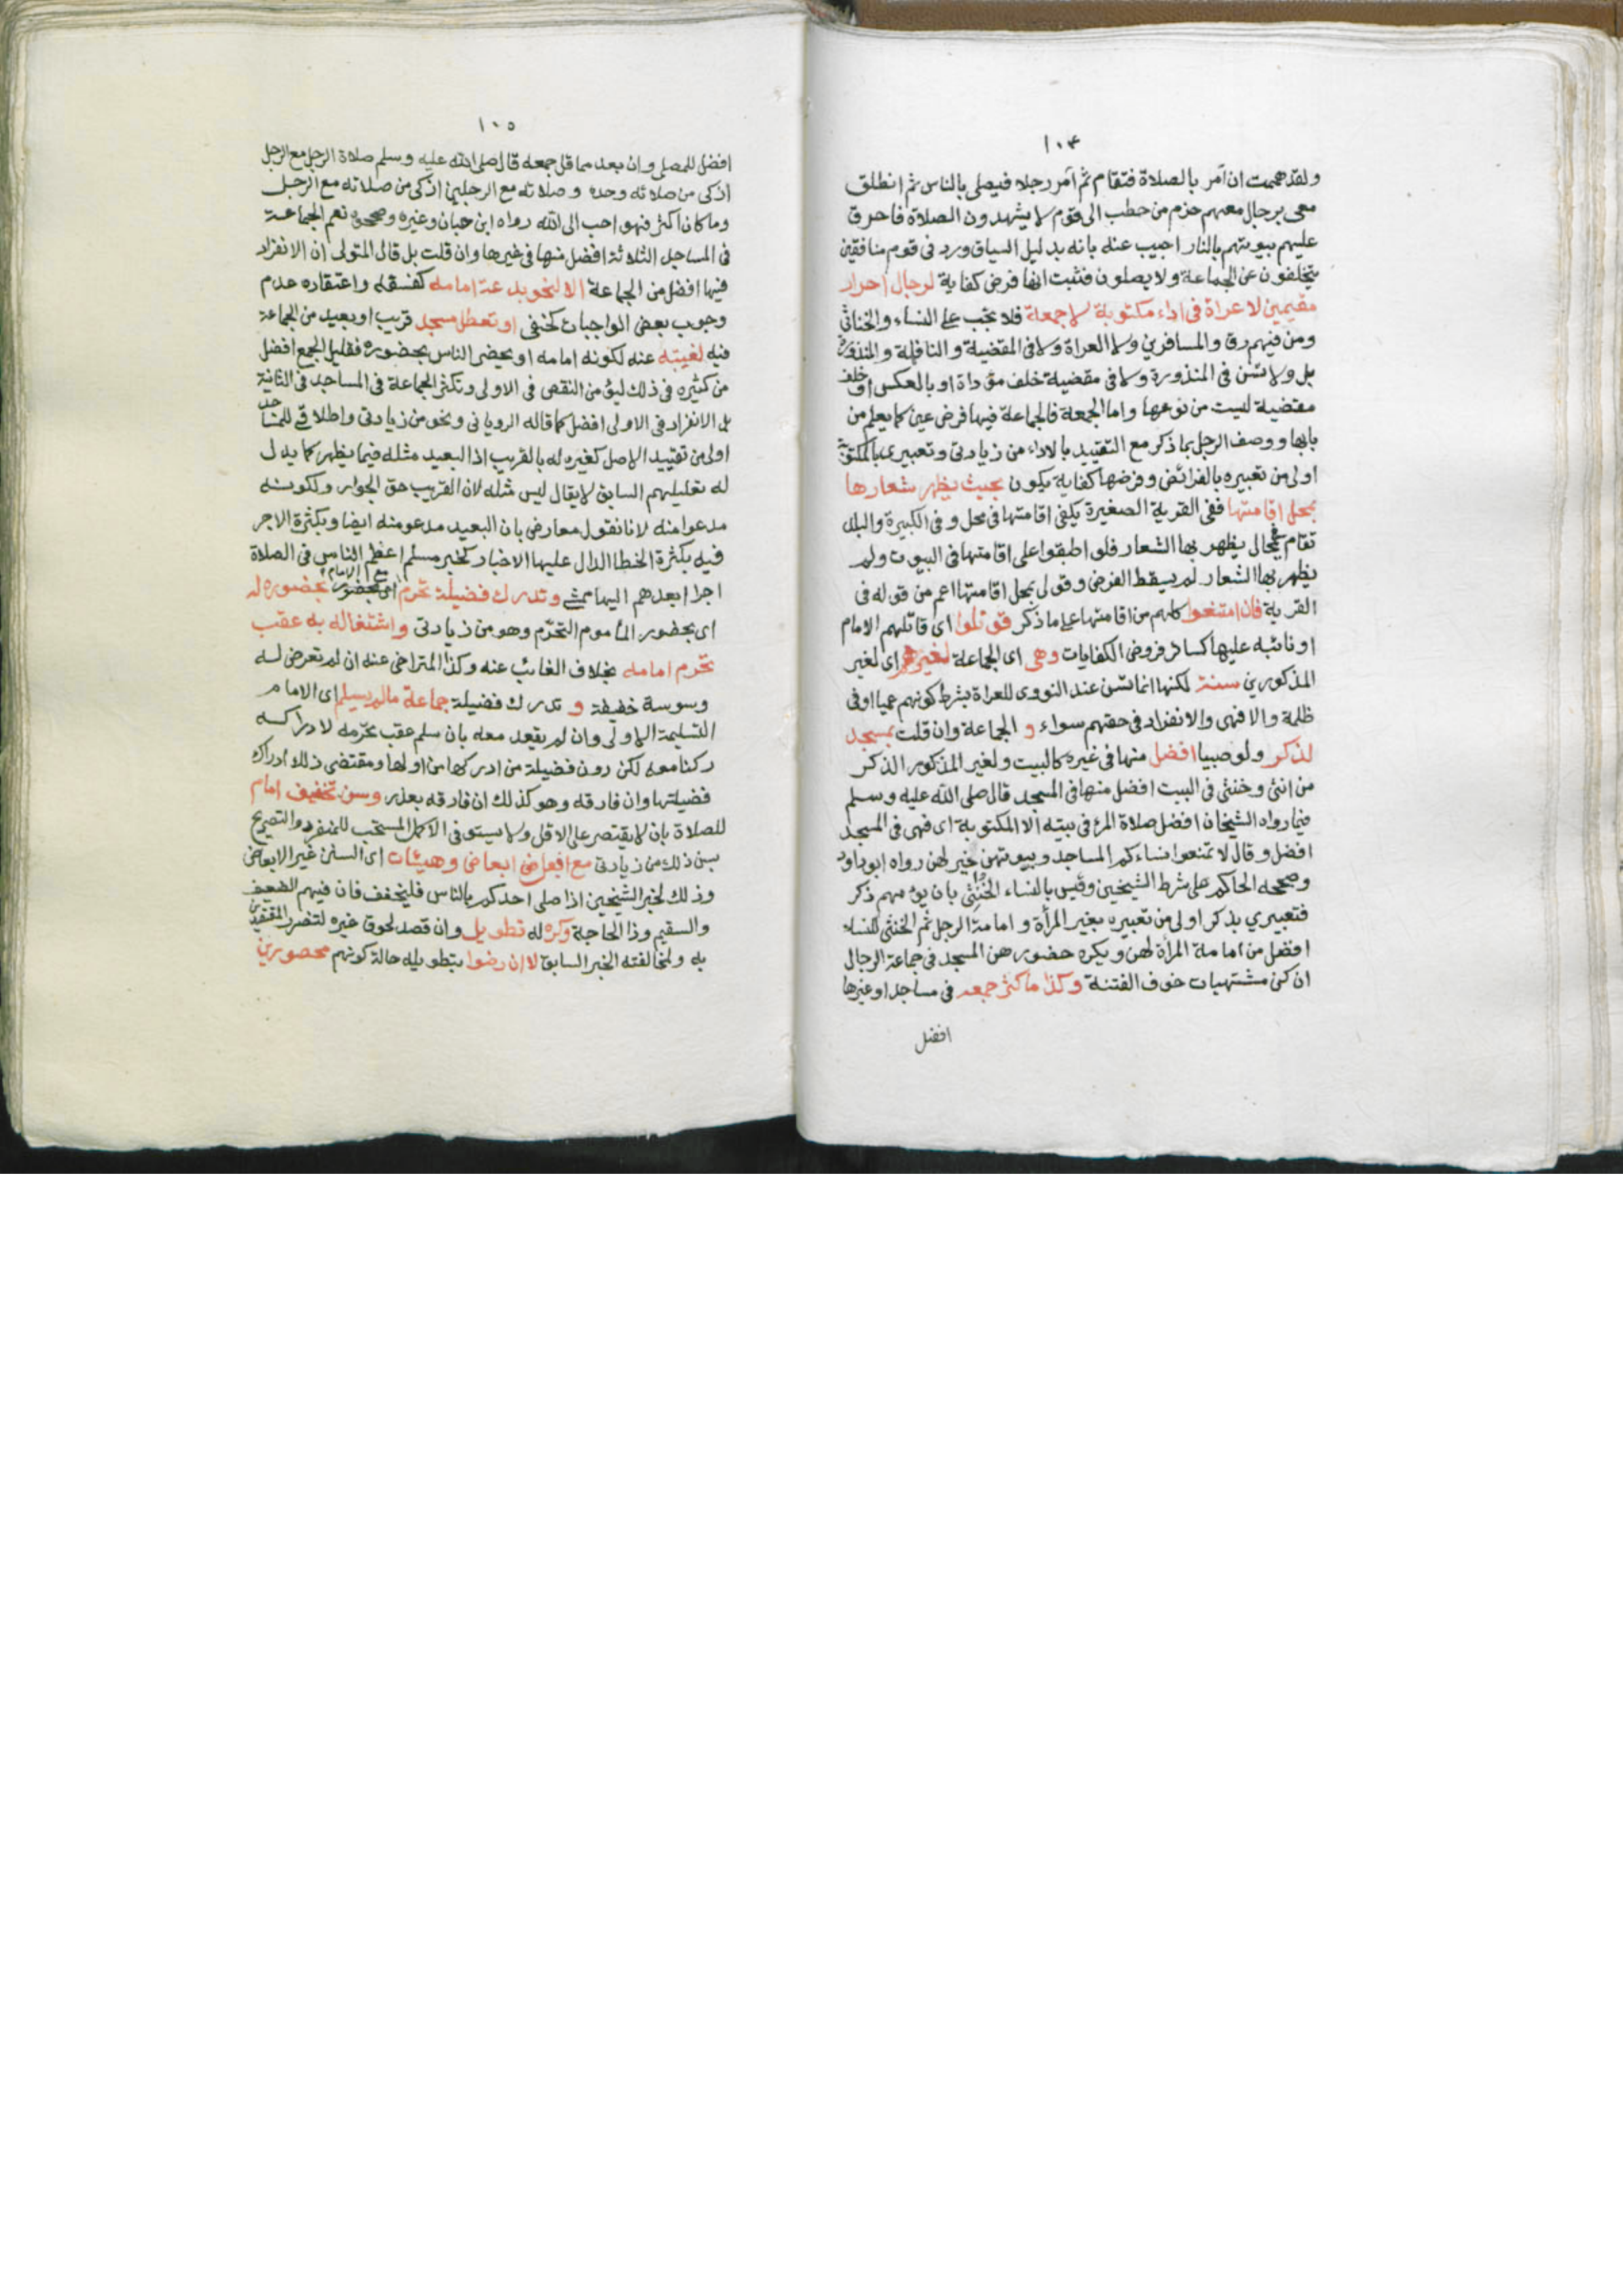 ١٠٤
ولقد هممت ان آمر بالصلاة فتقام ثم آمر رجلا فيصلي بالناس ثم انطلق
معى برجال معهم حزم من حطب الى قوم لا يشهدون الصلاة فاحرق
عليهم بيوتهم بالنار اجيب عنه بانه بدليل السياق ورد فى قوم منافقين
يتخلفون عن الجماعة ولا يصلون فثبت انها فرض كفاية لرجال احرار
مقيمين لا عراة فى اداء مكتوبة لا جمعة فلا تجب على النساء والخناثى
ومن فيهم رق والمسافرين ولا العراة ولا فى المقضية والنافلة والمنذورة
بل ولا تسن فى المنذورة ولا فى مقضية خلف مؤداة او بالعكس او خلف
مقضية ليست من نوعها واما الجمعة فالجماعة فيها فرض عين كما يعلم من
بابها ووصف الرجل بما ذكر مع التقييد بالاداء من زيادتى وتعبيرى بالمكتوبة
اولى من تعبيره بالفرائض وفرضها كفاية يكون بحيث يظهر شعارها
بمحل اقامتها ففى القرية الصغيرة يكفى اقامتها فى محل وفى الكبيرة والبلد
تقام فى محال يظهر بها الشعار فلو اطبقوا على اقامتها فى البيوت ولم
يظهر بها الشعار لم يسقط الفرض وقولى بمحل اقامتها اعم من قوله فى
القرية فان امتنعوا كلهم من اقامتها على ما ذكر قوتلوا اى قاتلهم الامام
او نائبه عليها كسائر فروض الكفايات وهى اى الجماعة لغيرهم اى لغير
المذكورين سنة لكنها انما تسن عند النووى للعراة بشرط كونهم عميا او فى
ظلمة والا فهى والانفراد فى حقهم سواء و الجماعة وان قلت بمسجد
لذكر ولو صبيا افضل منها فى غيره كالبيت ولغير المذكور الذكر
من انثى وخنثى فى البيت افضل منها فى المسجد قال صلى الله عليه وسلم
فيما رواه الشيخان افضل صلاة المرء فى بيته الا المكتوبة اى فهى فى المسجد
افضل وقال لا تمنعوا نساءكم المساجد وبيوتهن خير لهن رواه ابو داود
وصححه الحاكم على شرط الشيخين وقيس بالنساء الخنثى بان يؤمهم ذكر
فتعبيري بذكر اولى من تعبيره بغير المرأة و امامة الرجل ثم الخنثى للنساء
افضل من امامة المرأة لهن ويكره حضورهن المسجد فى جماعة الرجال
ان كن مشتهيات خوف الفتنة وكذا ما كثر جمعه فى مساجد او غيرها
افضل
١٠٥
افضل للمصلى وان بعد مما قل جمعه قال صلى الله عليه وسلم صلاة الرجل مع الرجل
ازكى من صلاته وحده وصلاته مع الرجلين ازكى من صلاته مع الرجل
وما كان اكثر فهو احب الى الله رواه ابن حبان وغيره وصححوه نعم الجماعة
فى المساجد الثلاثة افضل منها فى غيرها وان قلت بل قال المتولى ان الانفراد
فيها افضل من الجماعة الا لنحو بدعة امامه كفسقه واعتقاده عدم
وجوب بعض الواجبات كحنفى او تعطل مسجد قريب او بعيد من الجماعة
فيه لغيبته عنه لكونه امامه او يحضر الناس بحضوره فقليل الجمع افضل
من كثيره فى ذلك ليؤمن النقص فى الاولى وتكثر الجماعة فى المساجد فى الثانية
بل الانفراد فى الاولى افضل كما قاله الرويانى ونحو من زيادتى واطلاقى للمساجد
اولى من تقييد الاصل كغيره له بالقريب اذ البعيد مثله فيما يظهر كما يدل
له تعليلهم السابق لا يقال ليس مثله لان القريب حق الجوار ولكونه
مدعوا منه لانا نقول معارض بان البعيد مدعو منه ايضا وبكثرة الاجر
فيه بكثرة الخطا الدال عليها الاخبار كخبر مسلم اعظم الناس فى الصلاة
اجرا ابعدهم اليها ممشى وتدرك فضيلة تحرم مع الامام بحضوره له
اى بحضور المأموم التحرّم وهو من زيادتى واشتغاله به عقب
تحرم امامه بخلاف الغائب عنه وكذا المتراخى عنه ان لم تعرض له
وسوسة خفيفة و تدرك فضيلة جماعة ما لم يسلم اى الامام
التسليمة الاولى وان لم يقعد معه بان سلم عقب تحرّمه لادراكه
ركنا معه لكن دون فضيلة من ادركها من اولها ومقتضى ذلك ادراك
فضيلتها وان فارقه وهو كذلك ان فارقه بعذر وسن تخفيف امام
للصلاة بان لا يقتصر على الاقل ولا يستوفى الاكمل المستحب للمنفرد والتصريح
بسن ذلك من زيادتى مع فعل ابعاض وهيئات اى السنن غير الابعاض
وذلك لخبر الشيخين اذا صلى احدكم بالناس فليخفف فان فيهم الضعيف
والسقيم وذا الحاجة وكره له تطويل وان قصد لحوق غيره لتضرر المقتدين
به ولمخالفته الخبر السابق لا ان رضوا بتطويله حالة كونهم محصورين